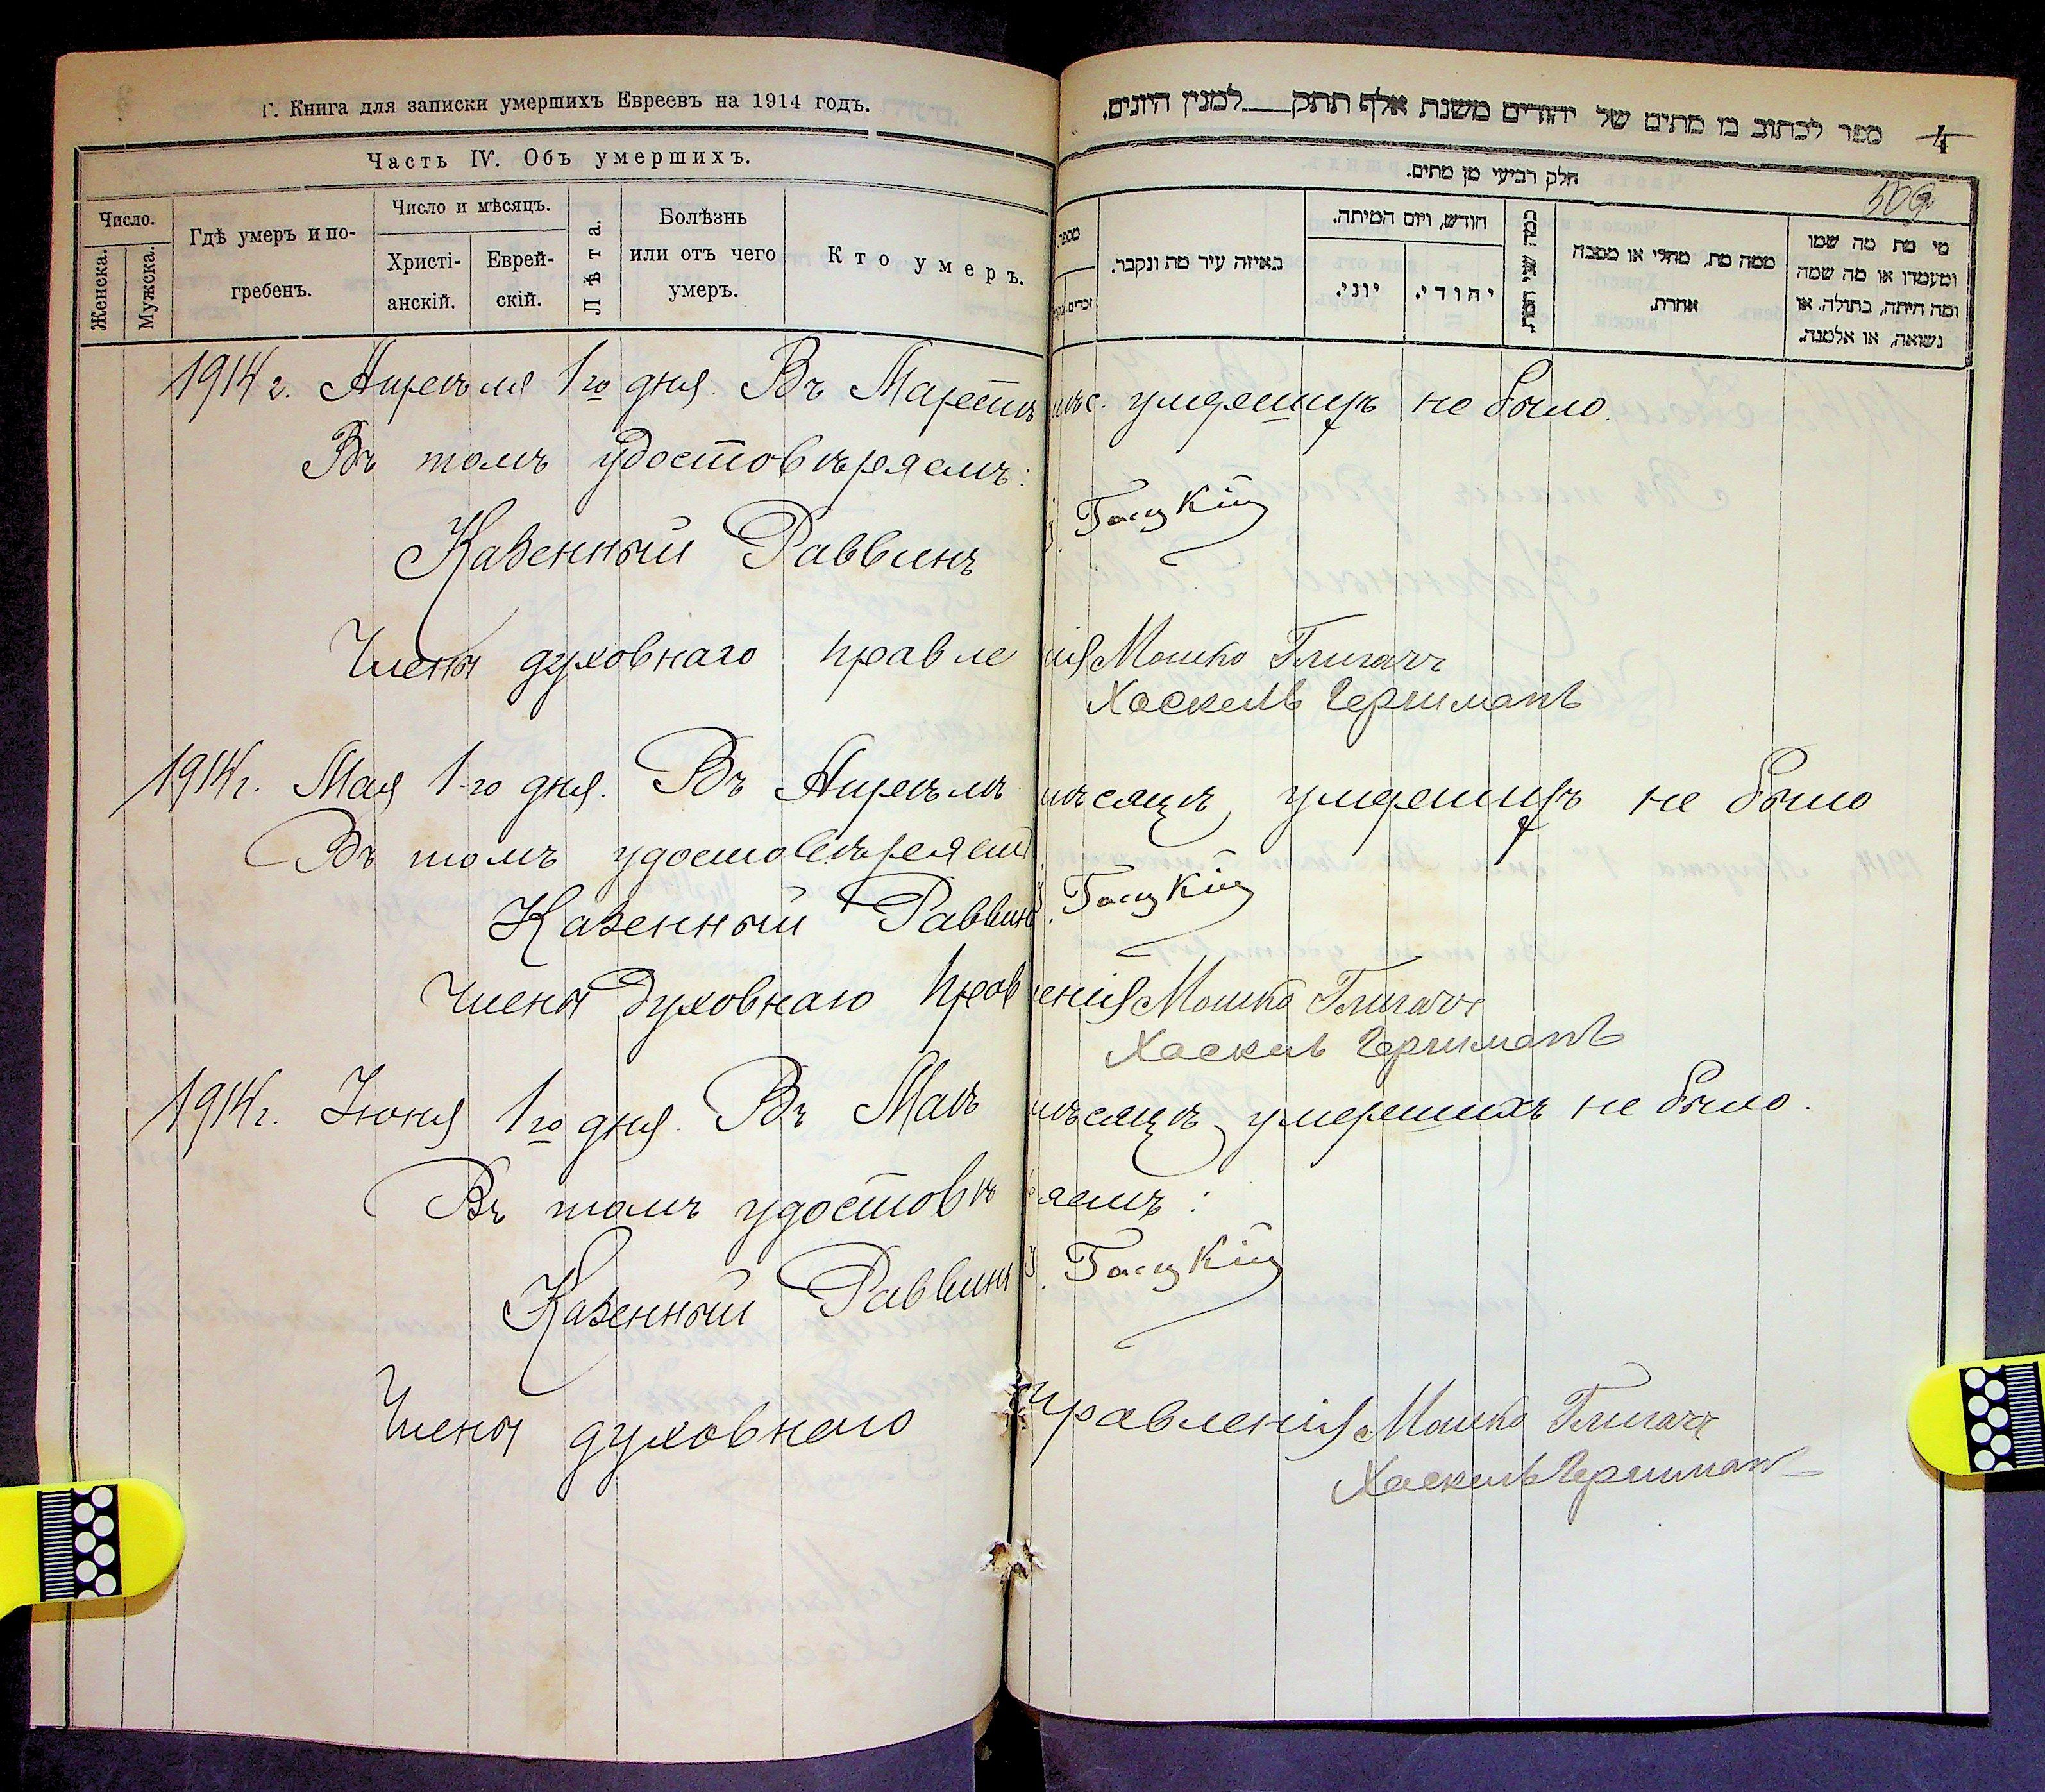 Г. Книга для записки умершихъ Евреевъ на 1914 годъ.
Часть IV. Объ умершихъ.
Число.
Женска.
Мужска.
Гдѣ умеръ и по-
гребенъ.
Число и мѣсяцъ.
Христі-
анскій.
Еврей-
скій.
Лѣта.
Болѣзнь
или отъ чего
умеръ.
Кто умеръ.
ספר לכתוב בו מתים של יהודים משנת אלף תתק למנין היונים.
4
509
חלק רביעי מן מתים.
מספר
זכרים
באיזה עיר מת ונקבר.
חודש, ויום המיתה.
יוני.
יהודי.
כמה שני המת.
ממה מת, מחלי או מסבה
אחרת.
מי מת מה שמו
ומעמדו או מה שמה
ומה היתה, בתולה, או
נשואה, או אלמנה.
1914 г. Апрѣля 1го дня. Въ Мартѣ мѣс. умершихъ не было.
Въ томъ удостовѣряемъ:
Казенный Раввинъ
Члены духовнаго правленія Мошко
Хаскель
1914 г. Мая 1-го дня. Въ Апрѣлѣ мѣсяцѣ умершихъ не было
Въ томъ удостовѣряемъ
Казенный Раввинъ
Члены Духовнаго Правленія Мошко
Хаскель
1914 г. Іюня 1го дня. Въ Маѣ мѣсяцѣ умершихъ не было.
Въ томъ удостовѣряемъ:
Казенный Раввинъ
Члены духовнаго правленія Мошко
Хаскель